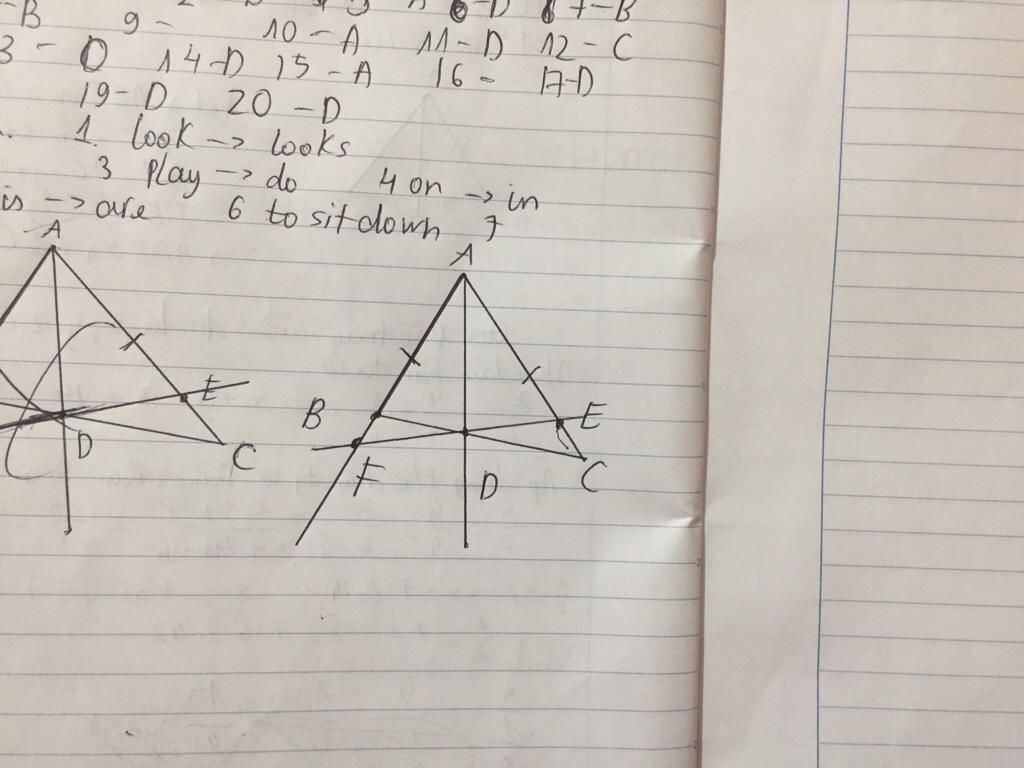 -B 9- 10-A 11-D 12-C
3-D 14-D 15-A 16- 17-D
19-D 20-D
1. look -> looks
3 play -> do 4 on -> in
is -> are 6 to sit down 7
A A
B E E
D C F D C